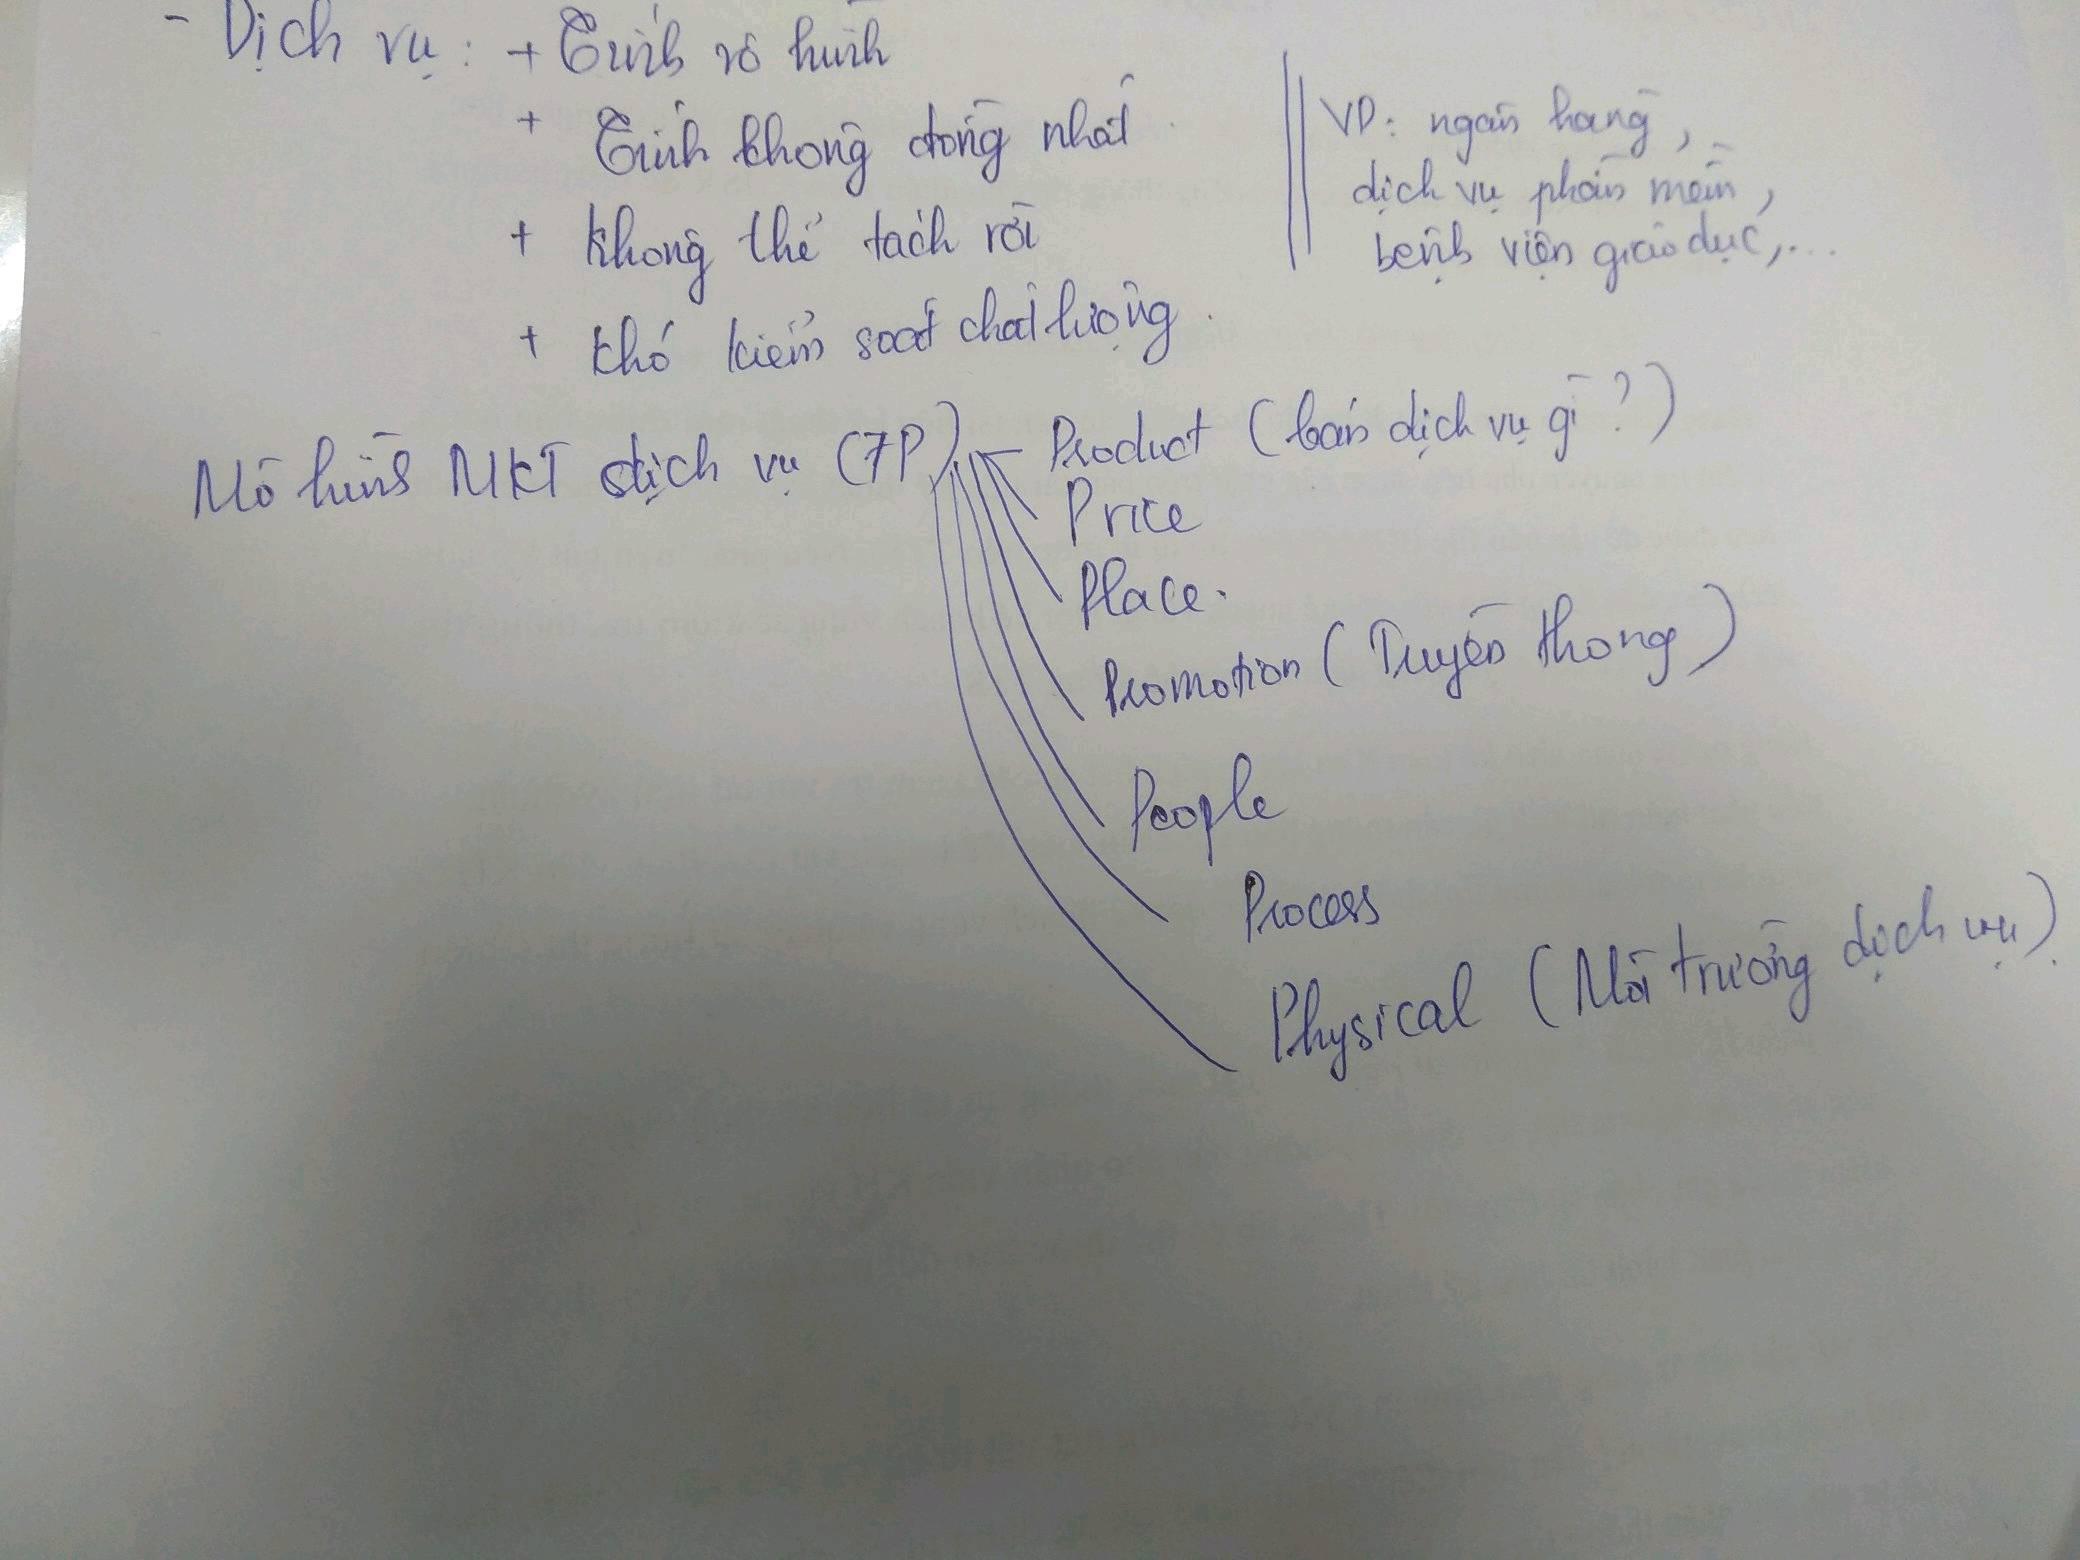 - Dịch vụ: + Tính vô hình
+ Tính không đồng nhất
+ Không thể tách rời
+ Khó kiểm soát chất lượng.
VD: ngân hàng,
dịch vụ phần mềm,
bệnh viện giáo dục,...
Mô hình MKT dịch vụ (7P)
Product (bán dịch vụ gì?)
Price
Place.
Promotion (Truyền thông)
People
Process
Physical (Môi trường dịch vụ).